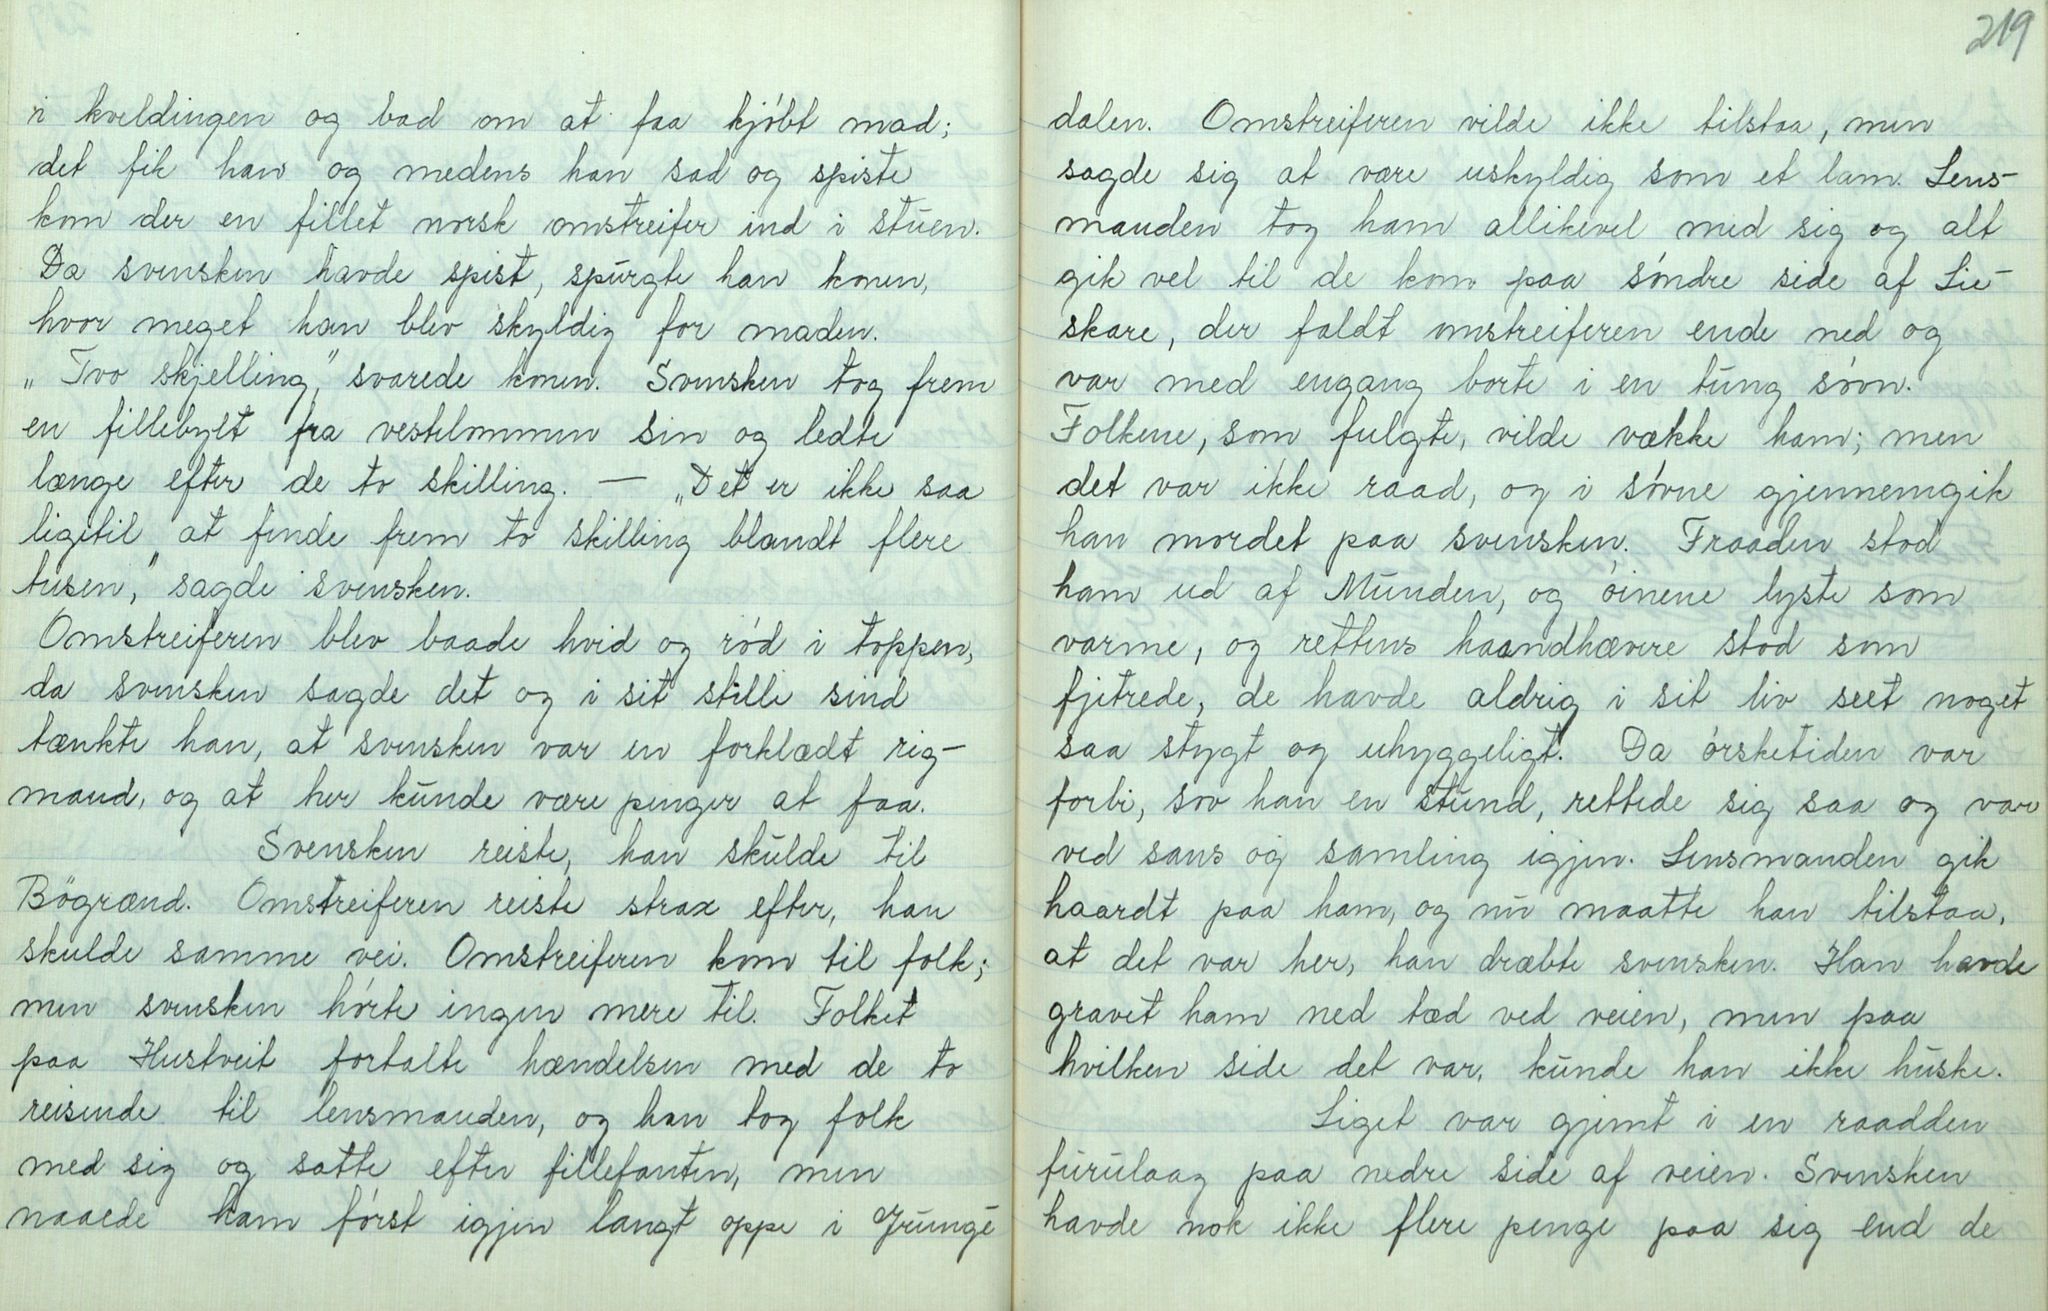 i kveldingen og bad om at faa kjöbt mad;
det fik han og medens han sad og spiste
kom der en fillet norsk omstreifer ind i stuen.
Da svensken havde spist, spurgte han konen,
hvor meget han blev skyldig for maden.
„Tvo skjelling,” svarede konen. Svensken tog frem
en fillebylt fra vestelommen sin og ledte
længe efter de to skilling. — „Det er ikke saa
ligetil at finde frem to skilling blandt flere
tusen,” sagde svensken.
Omstreiferen blev baade hvid og röd i toppen,
da svensken sagde det og i sit stille sind
tænkte han, at svensken var en forklædt rig-
mand, og at her kunde være penger at faa.
Svensken reiste, han skulde til
Bögrænd. Omstreiferen reiste strax efter, han
skulde samme vei. Omstreiferen kom til folk;
men svensken hörte ingen mere til. Folket
paa Hustveit fortalte hændelsen med de to
reisende til lensmanden, og han tog folk
med sig og satte efter fillefanten, men
naaede ham först igjen langt oppe i Grunge
219
dalen. Omstreiferen vilde ikke tilstaa, men
sagde sig at være uskyldig som et lam. Lens-
manden tog ham allikevel med sig og alt
gik vel til de kom paa söndre side af Lie-
skare, der faldt omstreiferen ende ned og
var med engang borte i en tung sövn.
Folkene, som fulgte, vilde vække ham; men
det var ikke raad, og i sövne gjennemgik
han mordet paa svensken. Fraaden stod
ham ud af Munden, og öinene lyste som
varme, og rettens haandhævere stod som
fjetrede, de havde aldrig i sit liv seet noget
saa stygt og uhyggeligt. Da örsketiden var
forbi, sov han en stund, rettede sig saa og var
ved sans og samling igjen. Lensmanden gik
haardt paa ham, og nu maatte han tilstaa,
at det var her, han dræbte svensken. Han havde
gravet ham ned tæd ved veien, men paa
hvilken side det var, kunde han ikke huske.
Liget var gjemt i en raadden
furulaag paa nedre side af veien. Svensken
havde nok ikke flere penge paa sig end de